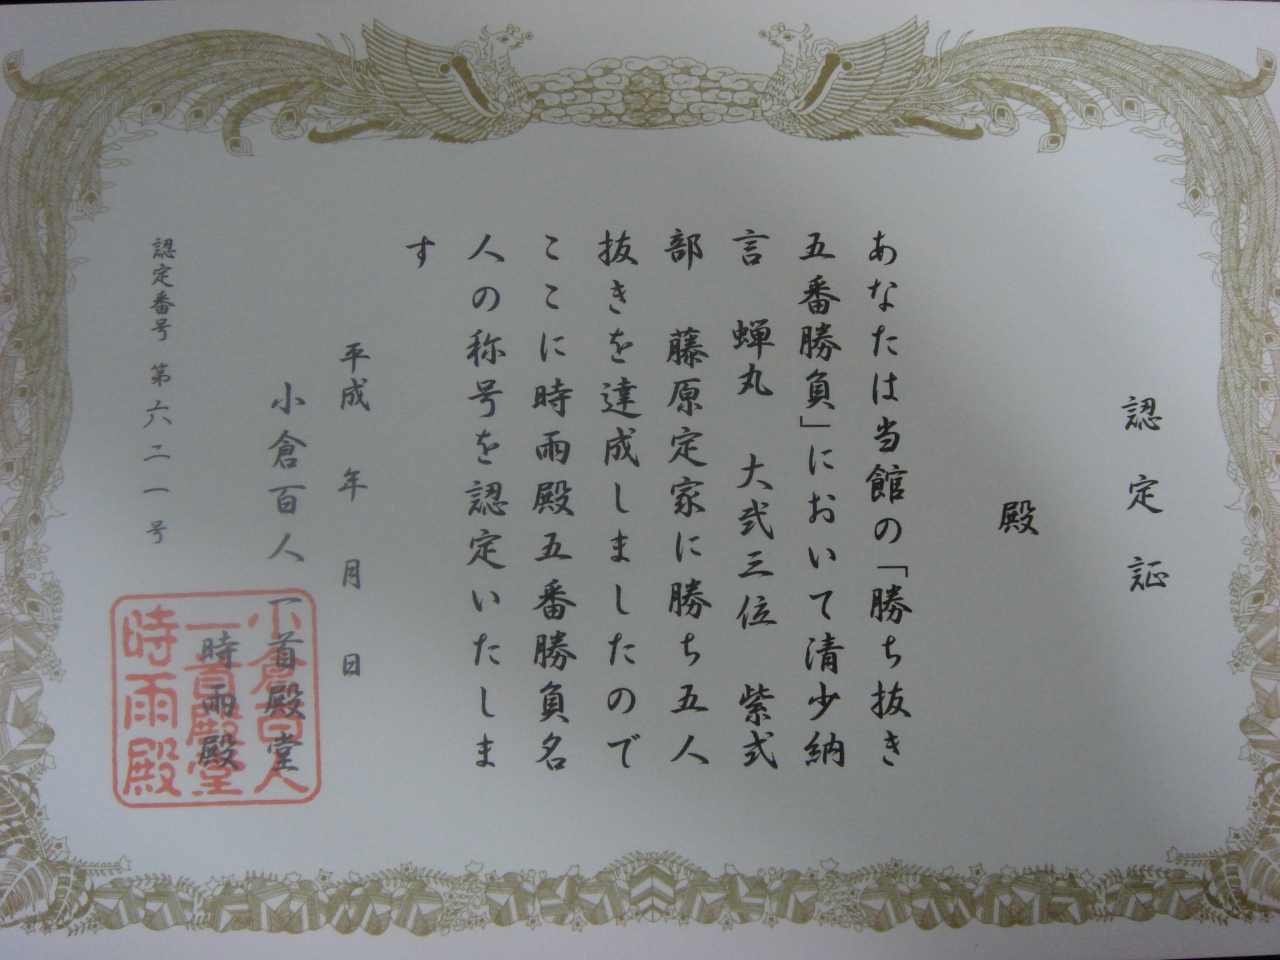 認定証
殿
あなたは当館の「勝ち抜き
五番勝負」において清少納
言 蝉丸 大弐三位 紫式
部 藤原定家に勝ち五人
抜きを達成しましたので
ここに時雨殿五番勝負名
人の称号を認定いたしま
す
平成 年 月 日
小倉百人一首殿堂
時雨殿
認定番号 第六二一号
小倉百人
一首殿堂
時雨殿